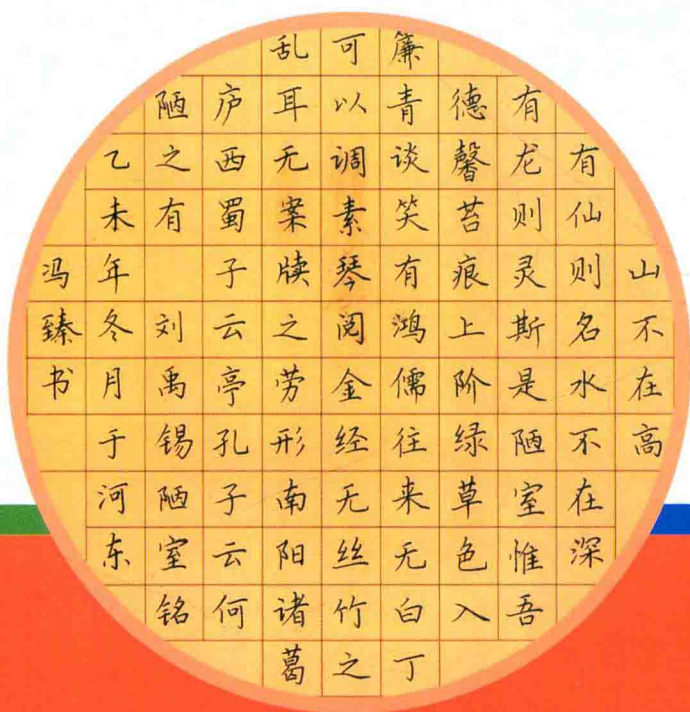 山不在高
有仙则名水不在深
有龙则灵斯是陋室惟吾
德馨苔痕上阶绿草色入
簾青谈笑有鸿儒往来无白丁
可以调素琴阅金经无丝竹之
乱耳无案牍之劳形南阳诸葛
庐西蜀子云亭孔子云何
陋之有 刘禹锡陋室铭
乙未年冬月于河东
冯臻书